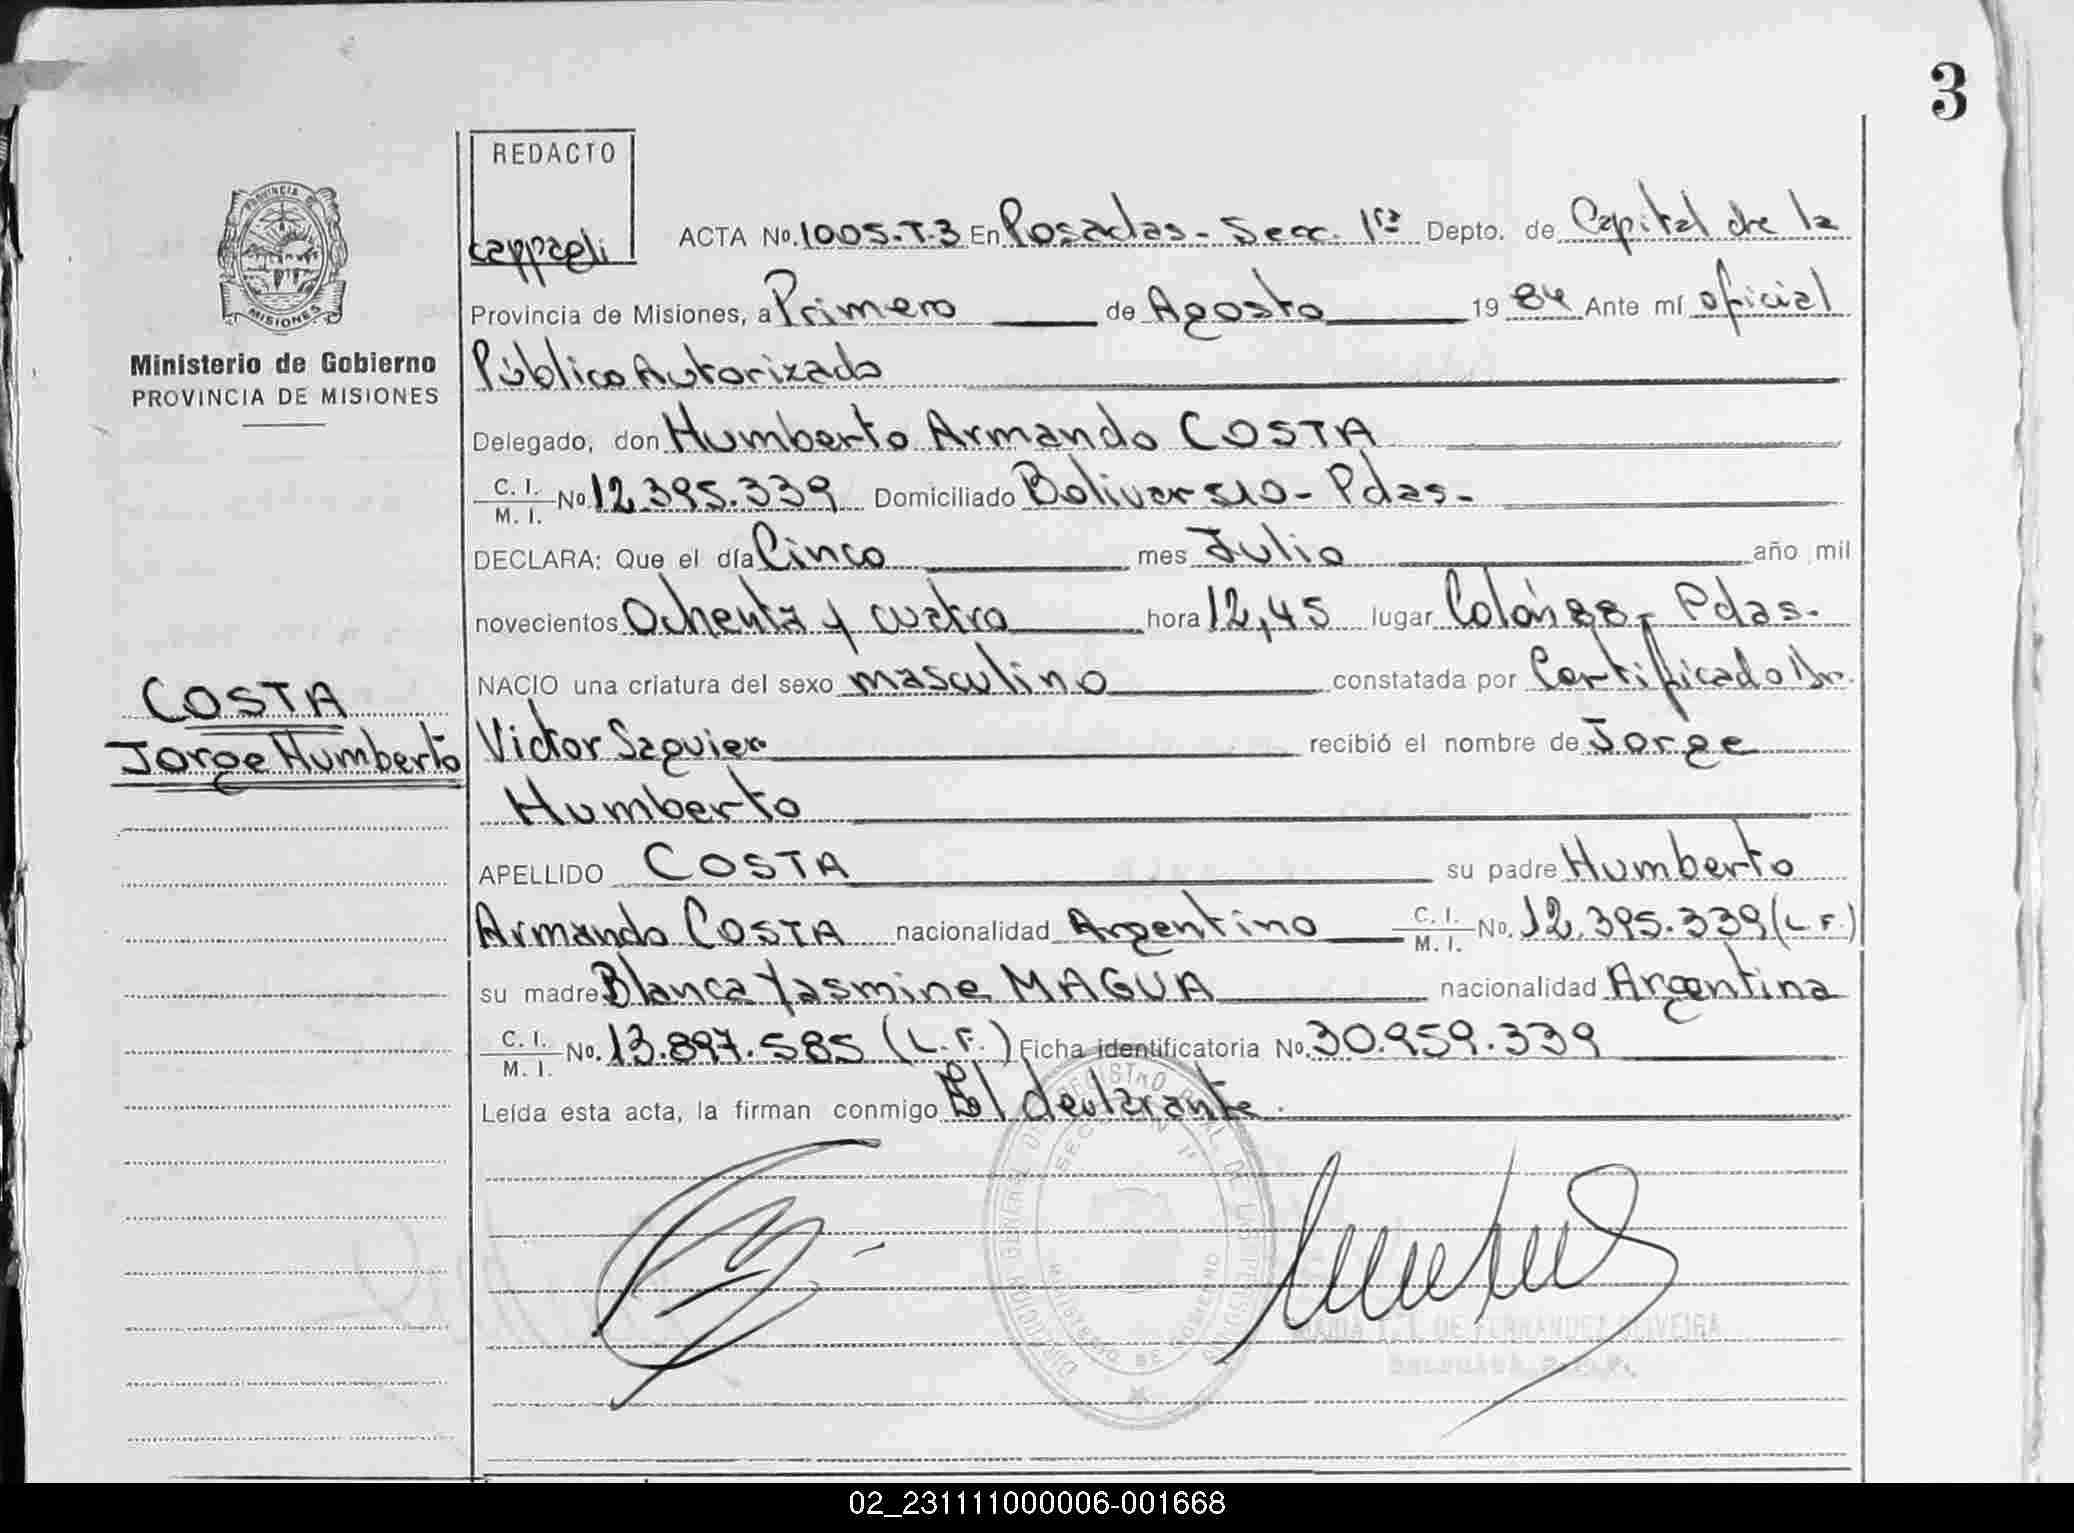 3
REDACTO
cappagli
PROVINCIA DE
MISIONES
Ministerio de Gobierno
PROVINCIA DE MISIONES
ACTA No. 1005-T-3 En Posadas - Secc. 1ra Depto. de Capital de la
Provincia de Misiones, a Primero de Agosto 19 84 Ante mí oficial
Público Autorizado
Delegado, don Humberto Armando COSTA
C. I. / M. I. No. 12.395.339 Domiciliado Bolivar 510 - Pdas-
DECLARA: Que el día Cinco mes Julio año mil
novecientos Ochenta y cuatro hora 12,45 lugar Colón 88 - Pdas-
NACIO una criatura del sexo masculino constatada por Certificado Dr.
Victor Saguier recibió el nombre de Jorge
Humberto
COSTA
Jorge Humberto
APELLIDO COSTA su padre Humberto
Armando COSTA nacionalidad Argentino C. I. / M. I. No. 12.395.339 (L.F.)
su madre Blanca Yasmine MAGUA nacionalidad Argentina
C. I. / M. I. No. 13.897.585 (L.F.) Ficha identificatoria No. 30.959.339
Leída esta acta, la firman conmigo El declarante.
DIRECCION GENERAL DEL REGISTRO PROVINCIAL DE LAS PERSONAS
SECCION 1ª
MINISTERIO DE GOBIERNO
DE FERNANDEZ OLIVEIRA
02_231111000006-001668